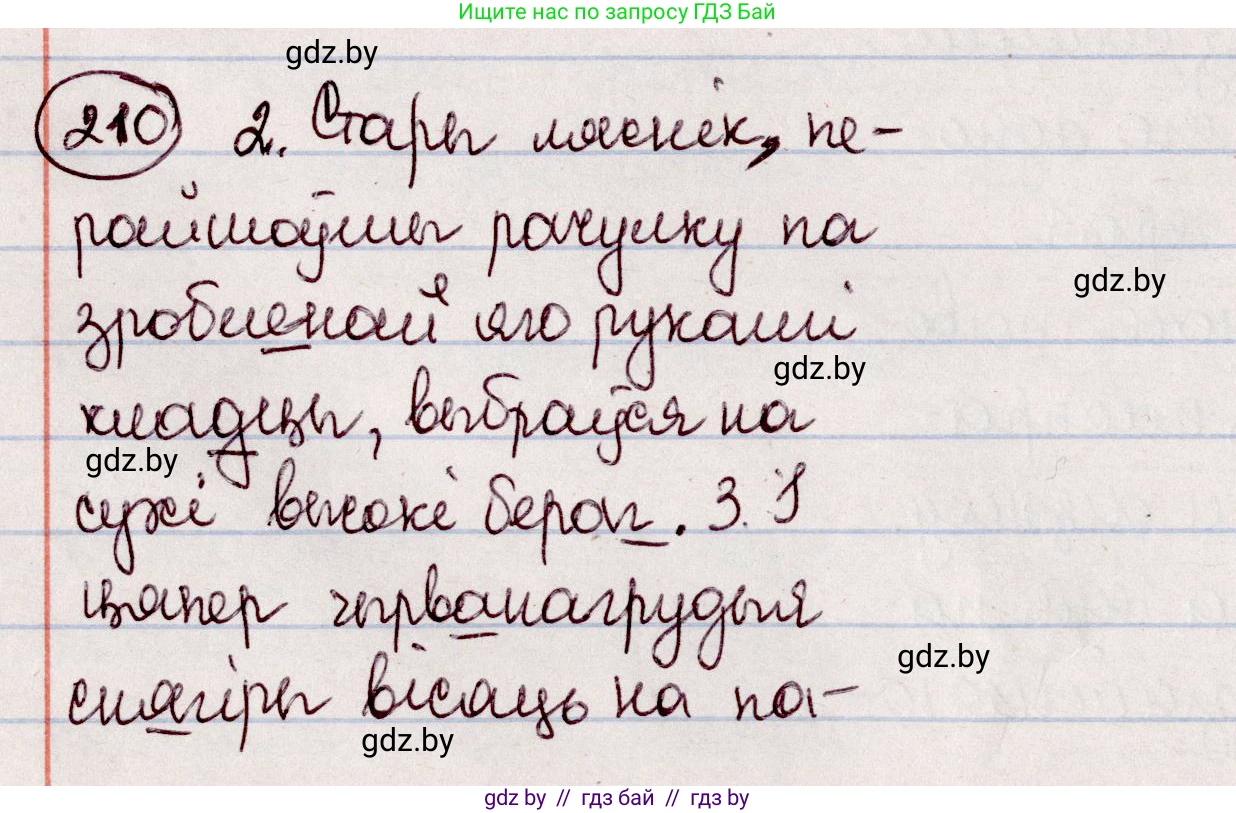 Ищите нас по запросу ГДЗ Бай
gdz.by
210 2. Стары ляснік, пе-
райшоўшы рачулку па
gdz.by
зробленай яго рукамі
gdz.by
кладцы, выбраўся на
gdz.by
сухі высокі бераг. 3. І
цяпер чырванагрудыя
gdz.by
снягіры вісяць на па-
gdz.by
gdz by // гдз бай // гдз by